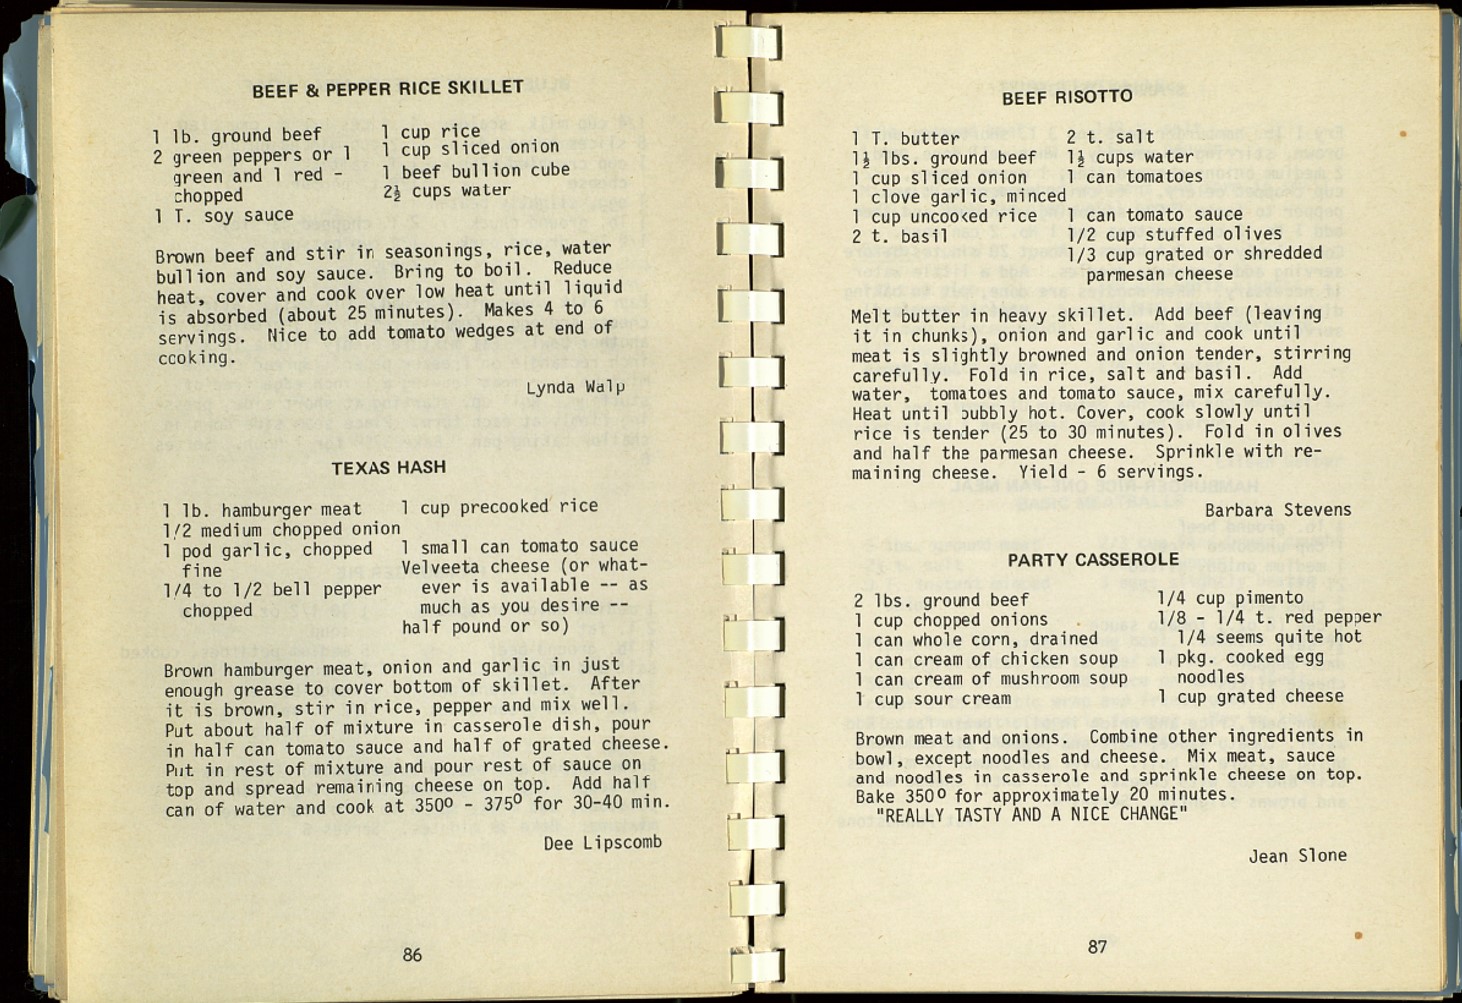 BEEF & PEPPER RICE SKILLET
1 lb. ground beef
2 green peppers or 1
green and 1 red -
chopped
1 T. soy sauce
1 cup rice
1 cup sliced onion
1 beef bullion cube
2½ cups water
Brown beef and stir in seasonings, rice, water
bullion and soy sauce. Bring to boil. Reduce
heat, cover and cook over low heat until liquid
is absorbed (about 25 minutes). Makes 4 to 6
servings. Nice to add tomato wedges at end of
cooking.
Lynda Walp
TEXAS HASH
1 lb. hamburger meat
1/2 medium chopped onion
1 pod garlic, chopped
fine
1/4 to 1/2 bell pepper
chopped
1 cup precooked rice
1 small can tomato sauce
Velveeta cheese (or what-
ever is available -- as
much as you desire --
half pound or so)
Brown hamburger meat, onion and garlic in just
enough grease to cover bottom of skillet. After
it is brown, stir in rice, pepper and mix well.
Put about half of mixture in casserole dish, pour
in half can tomato sauce and half of grated cheese.
Put in rest of mixture and pour rest of sauce on
top and spread remaining cheese on top. Add half
can of water and cook at 350º - 375º for 30-40 min.
Dee Lipscomb
86
BEEF RISOTTO
1 T. butter
1½ lbs. ground beef
1 cup sliced onion
1 clove garlic, minced
1 cup uncooked rice
2 t. basil
2 t. salt
1½ cups water
1 can tomatoes
1 can tomato sauce
1/2 cup stuffed olives
1/3 cup grated or shredded
parmesan cheese
Melt butter in heavy skillet. Add beef (leaving
it in chunks), onion and garlic and cook until
meat is slightly browned and onion tender, stirring
carefully. Fold in rice, salt and basil. Add
water, tomatoes and tomato sauce, mix carefully.
Heat until bubbly hot. Cover, cook slowly until
rice is tender (25 to 30 minutes). Fold in olives
and half the parmesan cheese. Sprinkle with re-
maining cheese. Yield - 6 servings.
Barbara Stevens
PARTY CASSEROLE
2 lbs. ground beef
1 cup chopped onions
1 can whole corn, drained
1 can cream of chicken soup
1 can cream of mushroom soup
1 cup sour cream
1/4 cup pimento
1/8 - 1/4 t. red pepper
1/4 seems quite hot
1 pkg. cooked egg
noodles
1 cup grated cheese
Brown meat and onions. Combine other ingredients in
bowl, except noodles and cheese. Mix meat, sauce
and noodles in casserole and sprinkle cheese on top.
Bake 350º for approximately 20 minutes.
"REALLY TASTY AND A NICE CHANGE"
Jean Slone
87